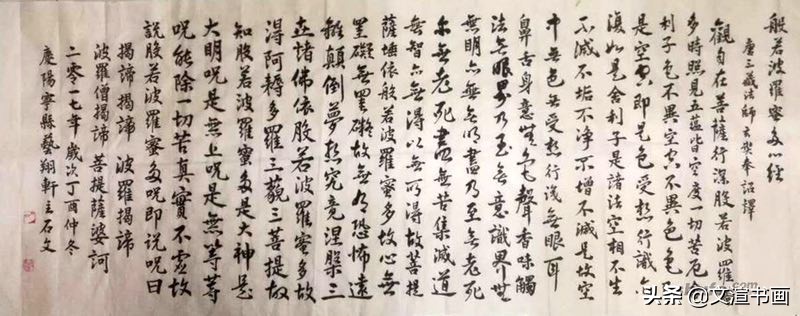 般若波羅蜜多心经
唐三藏法師玄奘奉詔譯
觀自在菩薩行深般若波羅
多時照見五蕴皆空度一切苦厄
利子色不異空空不異色色
是空空即是色受想行識亦
復如是舍利子是諸法空相不生
不滅不垢不净不增不減是故空
中無色無受想行识無眼耳
鼻舌身意無色聲香味觸
法無眼界乃至無意識界無
無明亦無無明盡乃至無老死
亦無老死盡無苦集滅道
無智亦無得以無所得故菩提
薩埵依般若波羅蜜多故心無
罣礙無罣礙故無有恐怖遠
離顛倒夢想究竟涅槃三
世諸佛依般若波羅蜜多故
得阿耨多羅三藐三菩提故
知般若波羅蜜多是大神咒是
大明咒是無上咒是無等等
呪能除一切苦真實不虛故
說般若波羅蜜多呪即说呪曰
揭諦揭諦 波羅揭諦
波羅僧揭諦 菩提薩婆訶
二零一七年歲次丁酉仲冬
慶陽寧縣藝翔軒主石文
头条@文渲书画